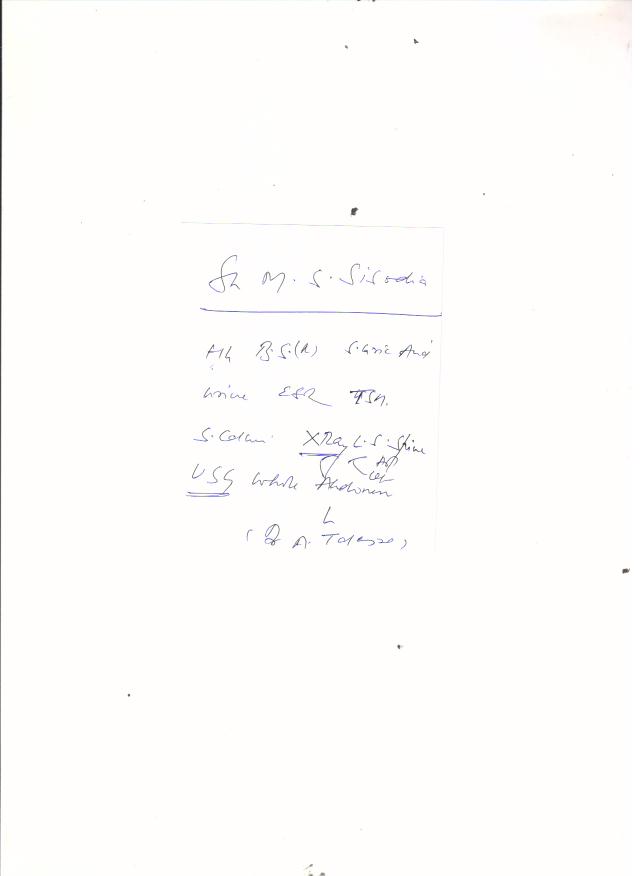 Sh M. S. Sisodia
Hb B.S.(R) S. Uric Acid
Urine ESR TSH.
S. Calcium X Ray L.S. Spine
AP
Lat
USG Whole Abdomen
(Dr A.